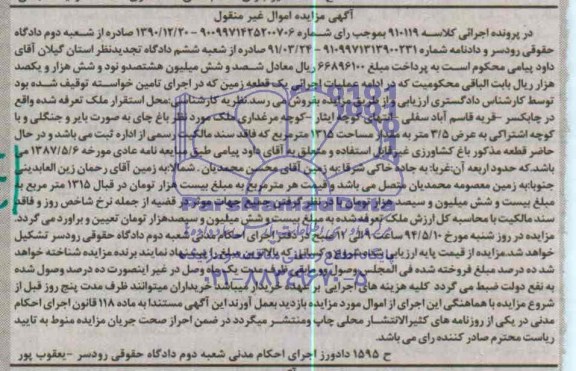 آگهی مزایده اموال غیر منقول
در پرونده اجرائی کلاسه ۹۱۰۱۱۹ بموجب رای شماره ۹۰۰۹۹۷۱۴۲۵۲۰۰۷۰۶ - ۱۳۹۰/۱۲/۲۰ صادره از شعبه دوم دادگاه
حقوقی رودسر و دادنامه شماره ۹۱۰۹۹۷۱۳۱۳۹۰۰۲۳۱ - ۹۱/۰۳/۲۴ صادره از شعبه ششم دادگاه تجدیدنظر استان گیلان آقای
داود پیامی محکوم است به پرداخت مبلغ ۶۶۸۹۶۱۰۰ ریال معادل شصد و شش میلیون هشتصدو نود و شش هزار و یکصد
هزار ریال بابت الباقی محکومیت که در ادامه عملیات اجرایی یک قطعه زمین که در اجرای تامین خواسته توقیف شده بود
توسط کارشناس دادگستری ارزیابی و از طریق مزایده بفروش می رسد نظریه کارشناسی: محل استقرار ملک تعرفه شده واقع
در چابکسر -قریه قاسم آباد سفلی - انتهای کوچه ایثار -کوچه مرغداری ملک مورد نظر باغ چای به صورت بایر و جنگلی و با
کوچه اشتراکی به عرض ۳/۵ متر به مقدار مساحت ۱۳۱۵ مترمربع که فاقد سند مالکیت رسمی از اداره ثبت می باشد و در حال
حاضر قطعه مذکور باغ کشاورزی غیر قابل استفاده و متعلق به آقای داود پیامی طبق مبایعه نامه عادی مورخه ۱۳۸۷/۵/۶ می
باشد.که حدود اربعه آن:غربا: به جاده خاکی شرقا:به زمین آقای محسن محمدیان . شمالا: به زمین آقای رحمان زین العابدینی
جنوبا:به زمین معصومه محمدیان متصل می باشد و قیمت هر مترمربع به مبلغ بیست هزار تومان در قبال ۱۳۱۵ متر مربع به
مبلغ بیست و شش میلیون و سیصد هزار تومان با در نظر گرفتن جمیع جهات موثر در قضیه از جمله نرخ شاخص روز و فاقد
سند مالکیت با محاسبه کل ارزش ملک تعرفه شده به مبلغ بیست و شش میلیون و سیصدهزار تومان تعیین و براورد می گردد.
مزایده در روز شنبه مورخ ۹۴/۵/۱۰ ساعت ۹ الی ۱۲ صبح در دفتر اجرای احکام مدنی شعبه دوم دادگاه حقوقی رودسر تشکیل
خواهد شد.مزایده از قیمت پایه ارزیابی شده شروع و کسانی که بالاترین مبلغ را پیشنهاد نمایند برنده مزایده شناخته خواهد
شد ده درصد مبلغ فروخته شده فی المجلس وصول و مابقی ظرف مدت یک ماه وصل در غیر اینصورت ده درصد وصول شده
به نفع دولت ضبط می گردد کلیه هزینه های اجرایی بر عهده خریدار میباشد خریداران میتوانند ظرف مدت پنج روز قبل از
شروع مزایده با هماهنگی این اجرای از اموال مورد مزایده بازدید بعمل آورند این آگهی مستندا به ماده ۱۱۸ قانون اجرای احکام
مدنی در یکی از روزنامه های کثیرالانتشار محلی چاپ ومنتشر میگردد در ضمن احراز صحت جریان مزایده منوط به تایید
ریاست محترم صادر کننده رای می باشد.
ح ۱۵۹۵ دادورز اجرای احکام مدنی شعبه دوم دادگاه حقوقی رودسر -یعقوب پور